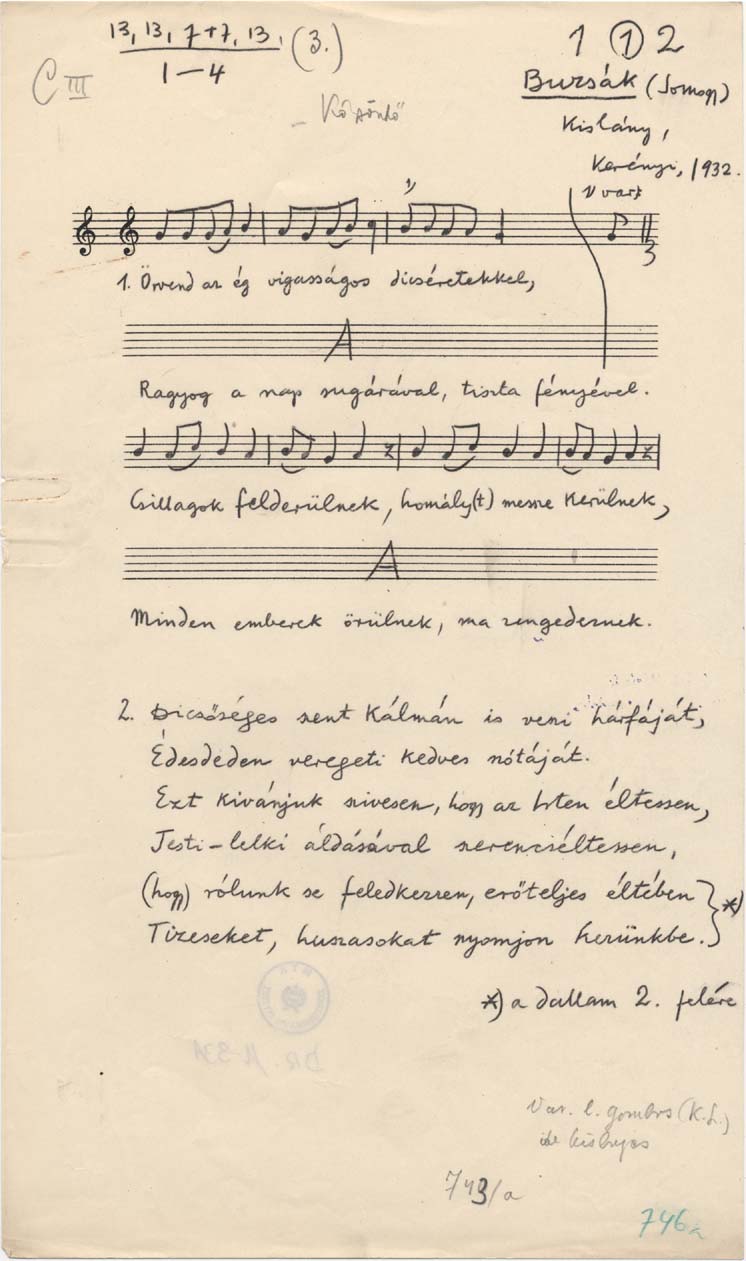 13, 13, 7+7, 13. (3.)
1–4
1 ① 2
C III
Buzsák (Somogy)
„Köszöntő”
Kislány,
Kerényi, 1932.
V var.
1)
3
1. Örvend az ég vigasságos dicséretekkel,
A
Ragyog a nap sugárával, tiszta fényével.
Csillagok felderülnek, homály(t) messze kerülnek,
A
Minden emberek örülnek, ma zengedeznek.
2. Dicsőséges szent Kálmán is veszi hárfáját,
Édesdeden veregeti kedves nótáját.
Ezt kivánjuk szivesen, hogy az Isten éltessen,
Testi-lelki áldásával szerencséltessen,
(hogy) rólunk se feledkezzen, erőteljes éltében *)
Tizeseket, huszasokat nyomjon kezünkbe.
*) a dallam 2. felére
Var. l. gombos (K.L.)
743/a
746a